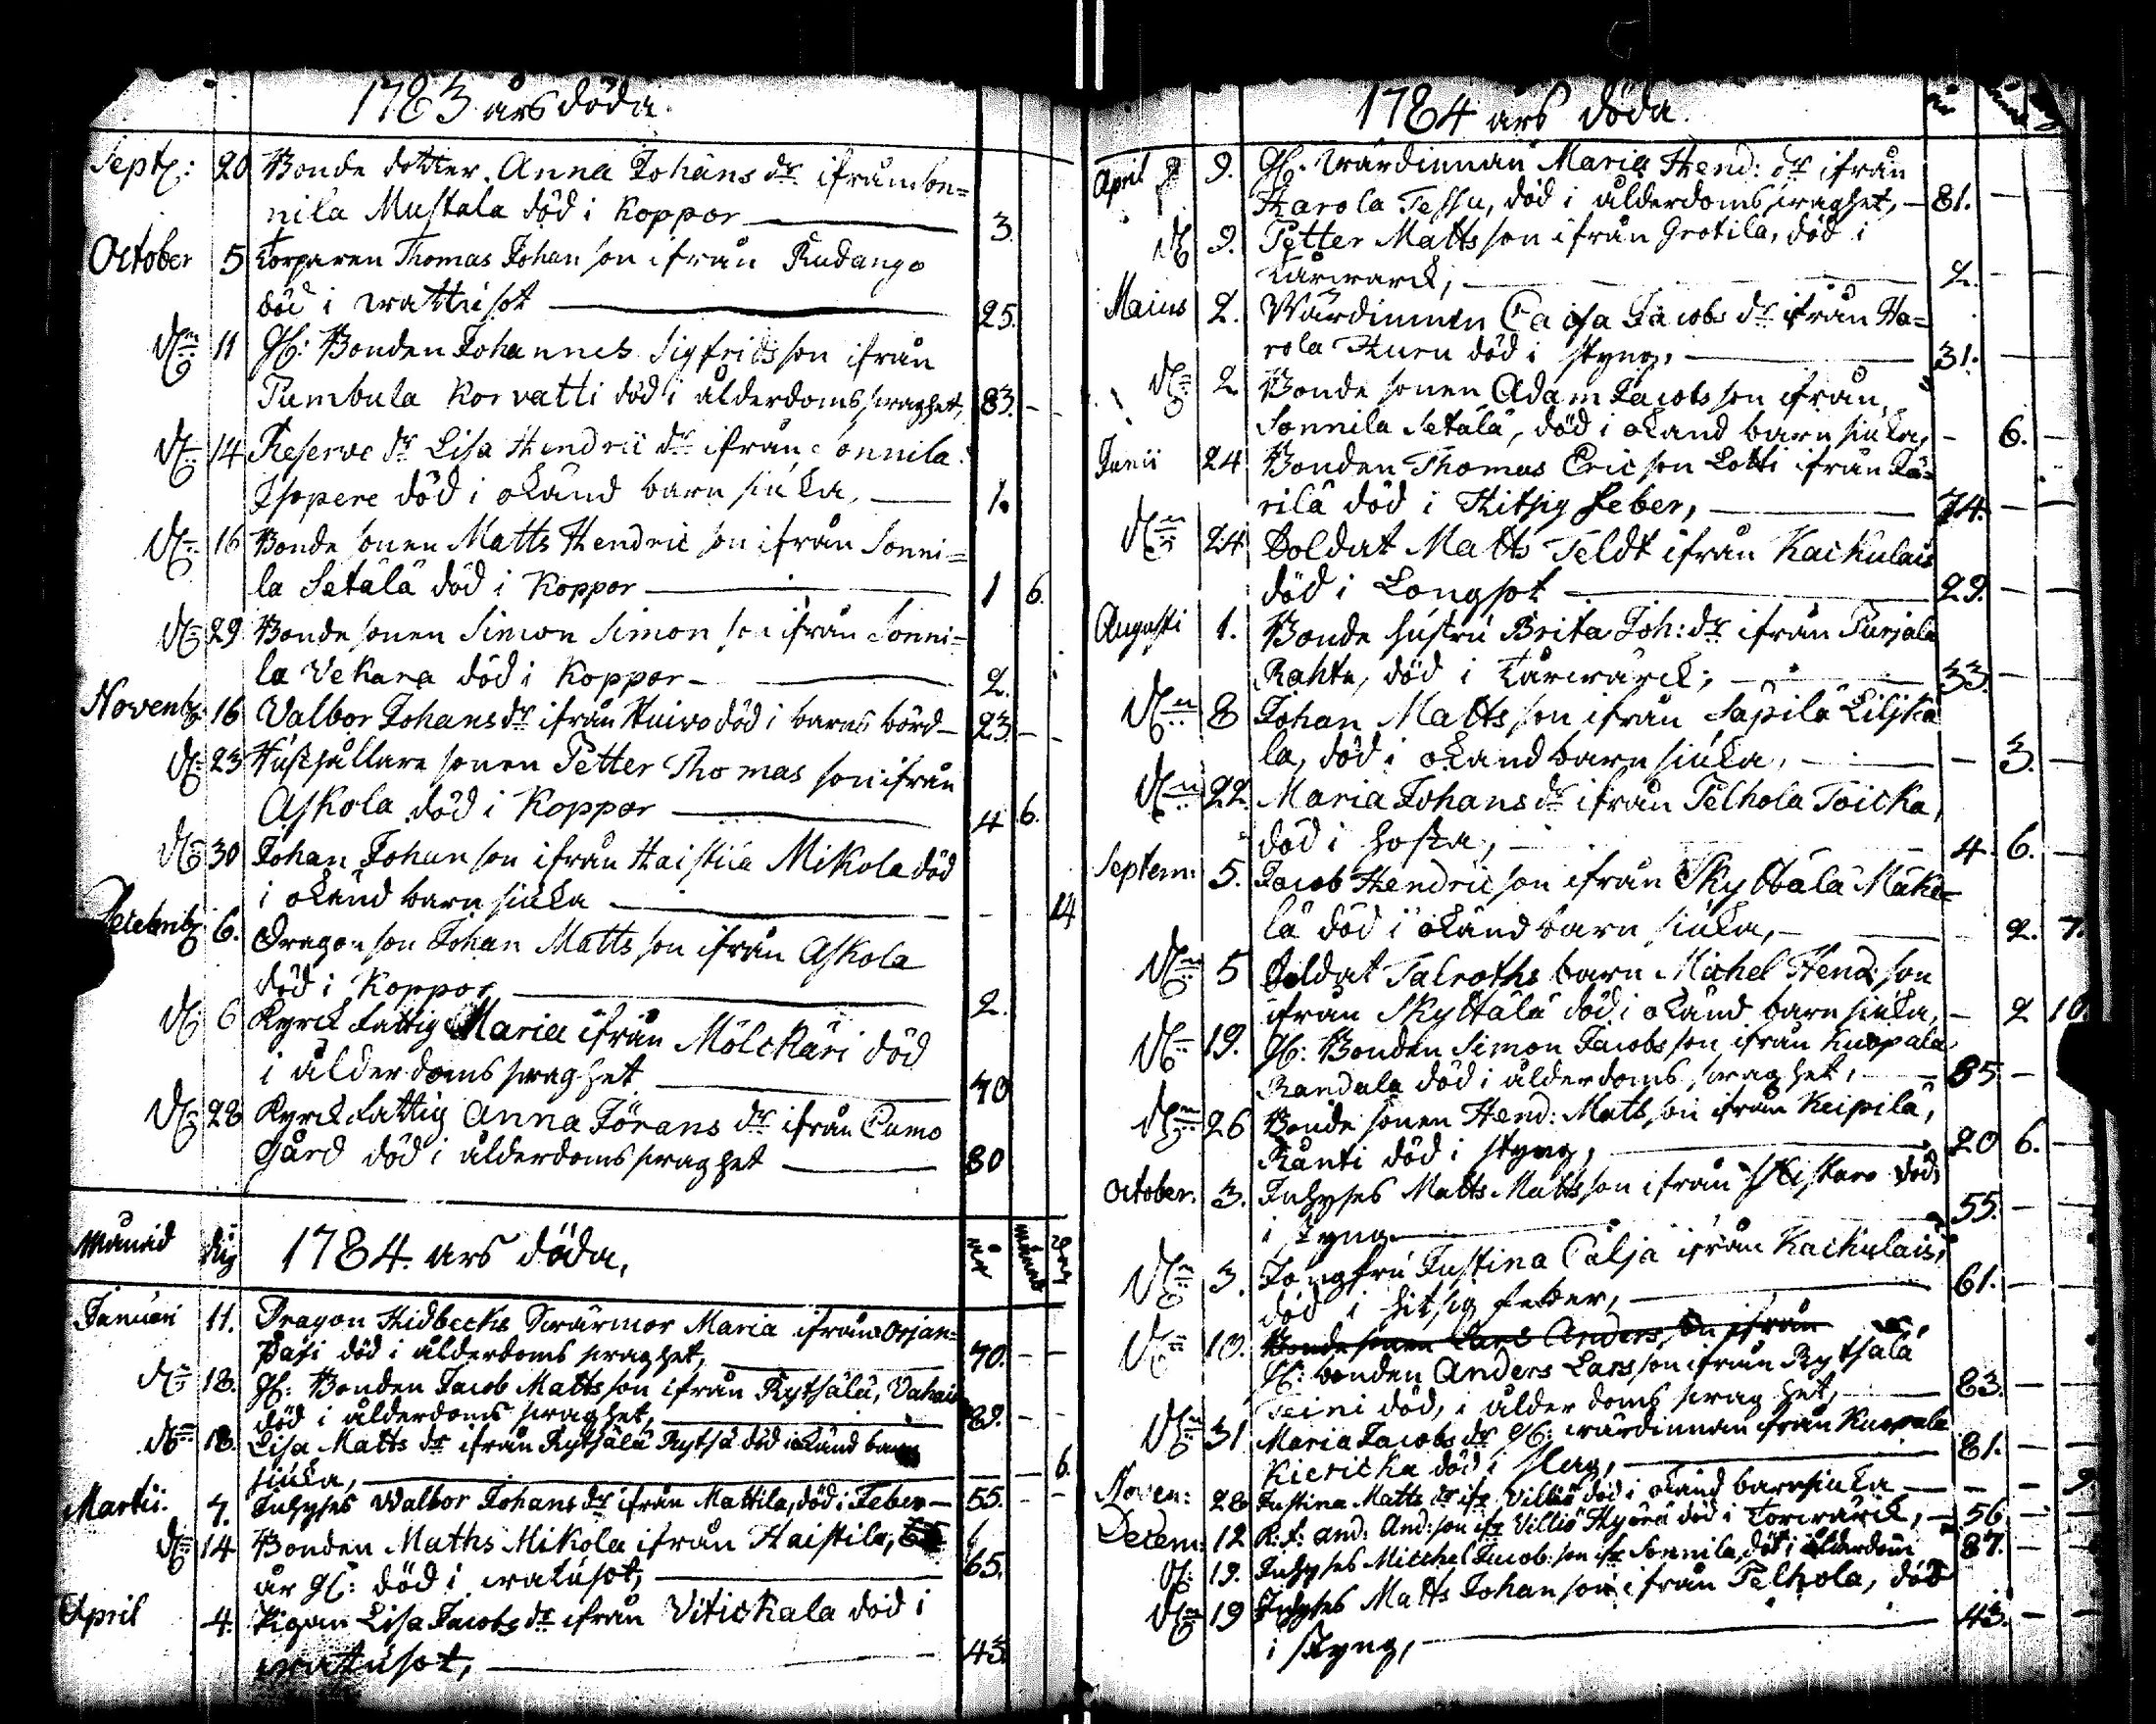 1783 års döda.
Sept: 20 Bonde dotter Anna Johans dr ifrån Son=
nila Mustala död i Koppor 3.
October 5 Torparen Thomas Johan son ifrån
död i wattusot 25.
Dn 11 Gl: Bonden Johannes Sigfrids son ifrån
Pumbula Korvatti död i ålderdoms swaghet, 83.
Dn 14 Reserve dr Lisa Hendric dr ifrån Sonnila
Isopere död i okänd barn siuka, 1.
Dn 16 Bonde sonen Matts Hendric son ifrån Sonni=
la Setälä död i Koppor 1 6.
Dn 29 Bonde sonen Simon Simon son ifrån Sonni=
la Vekara död i Koppor 2.
Novemb: 16 Valbor Johans dr ifrån Huivo död i barns börd 23.
Dn 23 Hushållare sonen Petter Thomas son ifrån
Askola död i Koppor 4 6.
Dn 30 Johan Johan son ifrån Haistila Mikola död
i okänd barn siuka 14
Decembr: 6. Dragon son Johan Matts son ifrån Askola
död i Koppor 2.
Dn 6 Kyrck fattig Maria ifrån Mölckäri död
i ålderdoms swaghet 70
Dn 28 Kyrck fattig Anna Jörans dr ifrån Cumo
Gård död i ålderdoms swaghet 80
Månad dag 1784 års döda. år månad dag
Januari 11. Dragon Hidbecks Swärmor Maria ifrån Orjan=
Pási död i ålderdoms swaghet, 70.
Dn 18. Gl: Bonden Jacob Matts son ifrån Rytsälä, Vahais
död i ålderdoms swaghet, 89.
Dn 18. Lisa Matts dr ifrån Rytsälä Rytsä död i okänd barn
siuka, 6.
Martii. 7. Inhyses Walbor Johans dr ifrån Mattila, död i Feber 55.
Dn 14 Bonden Maths Mikola ifrån Haistila,
år gl: död i watusot, 65.
April 4. Pigan Lisa Jacobs dr ifrån Vitickala död i
watusot, 43
1784 års döda. år månad dag
April 9. Gl. Wärdinnan Maria Hend: dr ifrån
Harola Tessu, död i ålderdoms swaghet, 81.
Dn 9. Petter Matts son ifrån Grotila, död i
2.
Maius 2. Wärdinnen Caisa Jacobs dr ifrån Ha=
rola Huru död i styng, 31.
Dn 2 Bonde sonen Adam Jacobs son ifrån
Sonnila Setälä, död i okänd barn siuka, 6.
Junii 24 Bonden Thomas Eric son Lotti ifrån Jä=
rilä död i Hitsig feber, 74.
Dn 24 Soldat Matts Feldt ifrån Kackulais
död i Longsot 29.
Augusti 1. Bonde hustru Brita Joh: dr ifrån Purjala
Rahtu, död i Tårwärck; 33.
Dn 8 Johan Matts son ifrån Säpilä Liljka
la, död i okänd barn siuka, 3.
Dn 22. Maria Johans dr ifrån Pelhola Toicka,
död i hosta, 4. 6.
Septem: 5. Jacob Hendric son ifrån Skyttälä Mäke=
lä död i okänd barn siuka, 2. 7.
Dn 5 Soldat Talroths barn Michel Hend: son
ifrån Skyttälä död i okänd barn siuka, 2 10
Dn 19. Gl: Bonden Simon Jacobs son ifrån Kurpala
Randala död i ålderdoms swaghet, 85
Dn 26 Bonde sonen Hend: Mats son ifrån Keipilä,
Ränti död i styng, 20 6.
October. 3. Inhyses Matts Matts son ifrån död
i styng 55.
Dn 3. Jongfru Justina Calja ifrån Kackulais,
död i hitsig feber, 61.
Dn 10. Bonde sonen Lars Anders son ifrån
Gl: bonden Anders Lars son ifrån Rytsälä
Teini död, i ålderdoms swaghet, 83.
Dn 31 Maria Jacobs dr gl: wärdinnan ifrån Kurpala
Kiericka död i slag, 81.
Noven: 28 Justina Matts dr ifr Villiö död i okänd barnsiuka 9.
Decem: 12 K: f: And: And: son ifr Villiö Hyörä död i Torwärck, 56
Dn 19. Inhyses Mitchel Jacob: son ifr Sonnila, död i ålderdom 87.
Dn 19 Inhyses Matts Johan son ifrån Pelhola, död
i styng, 43.